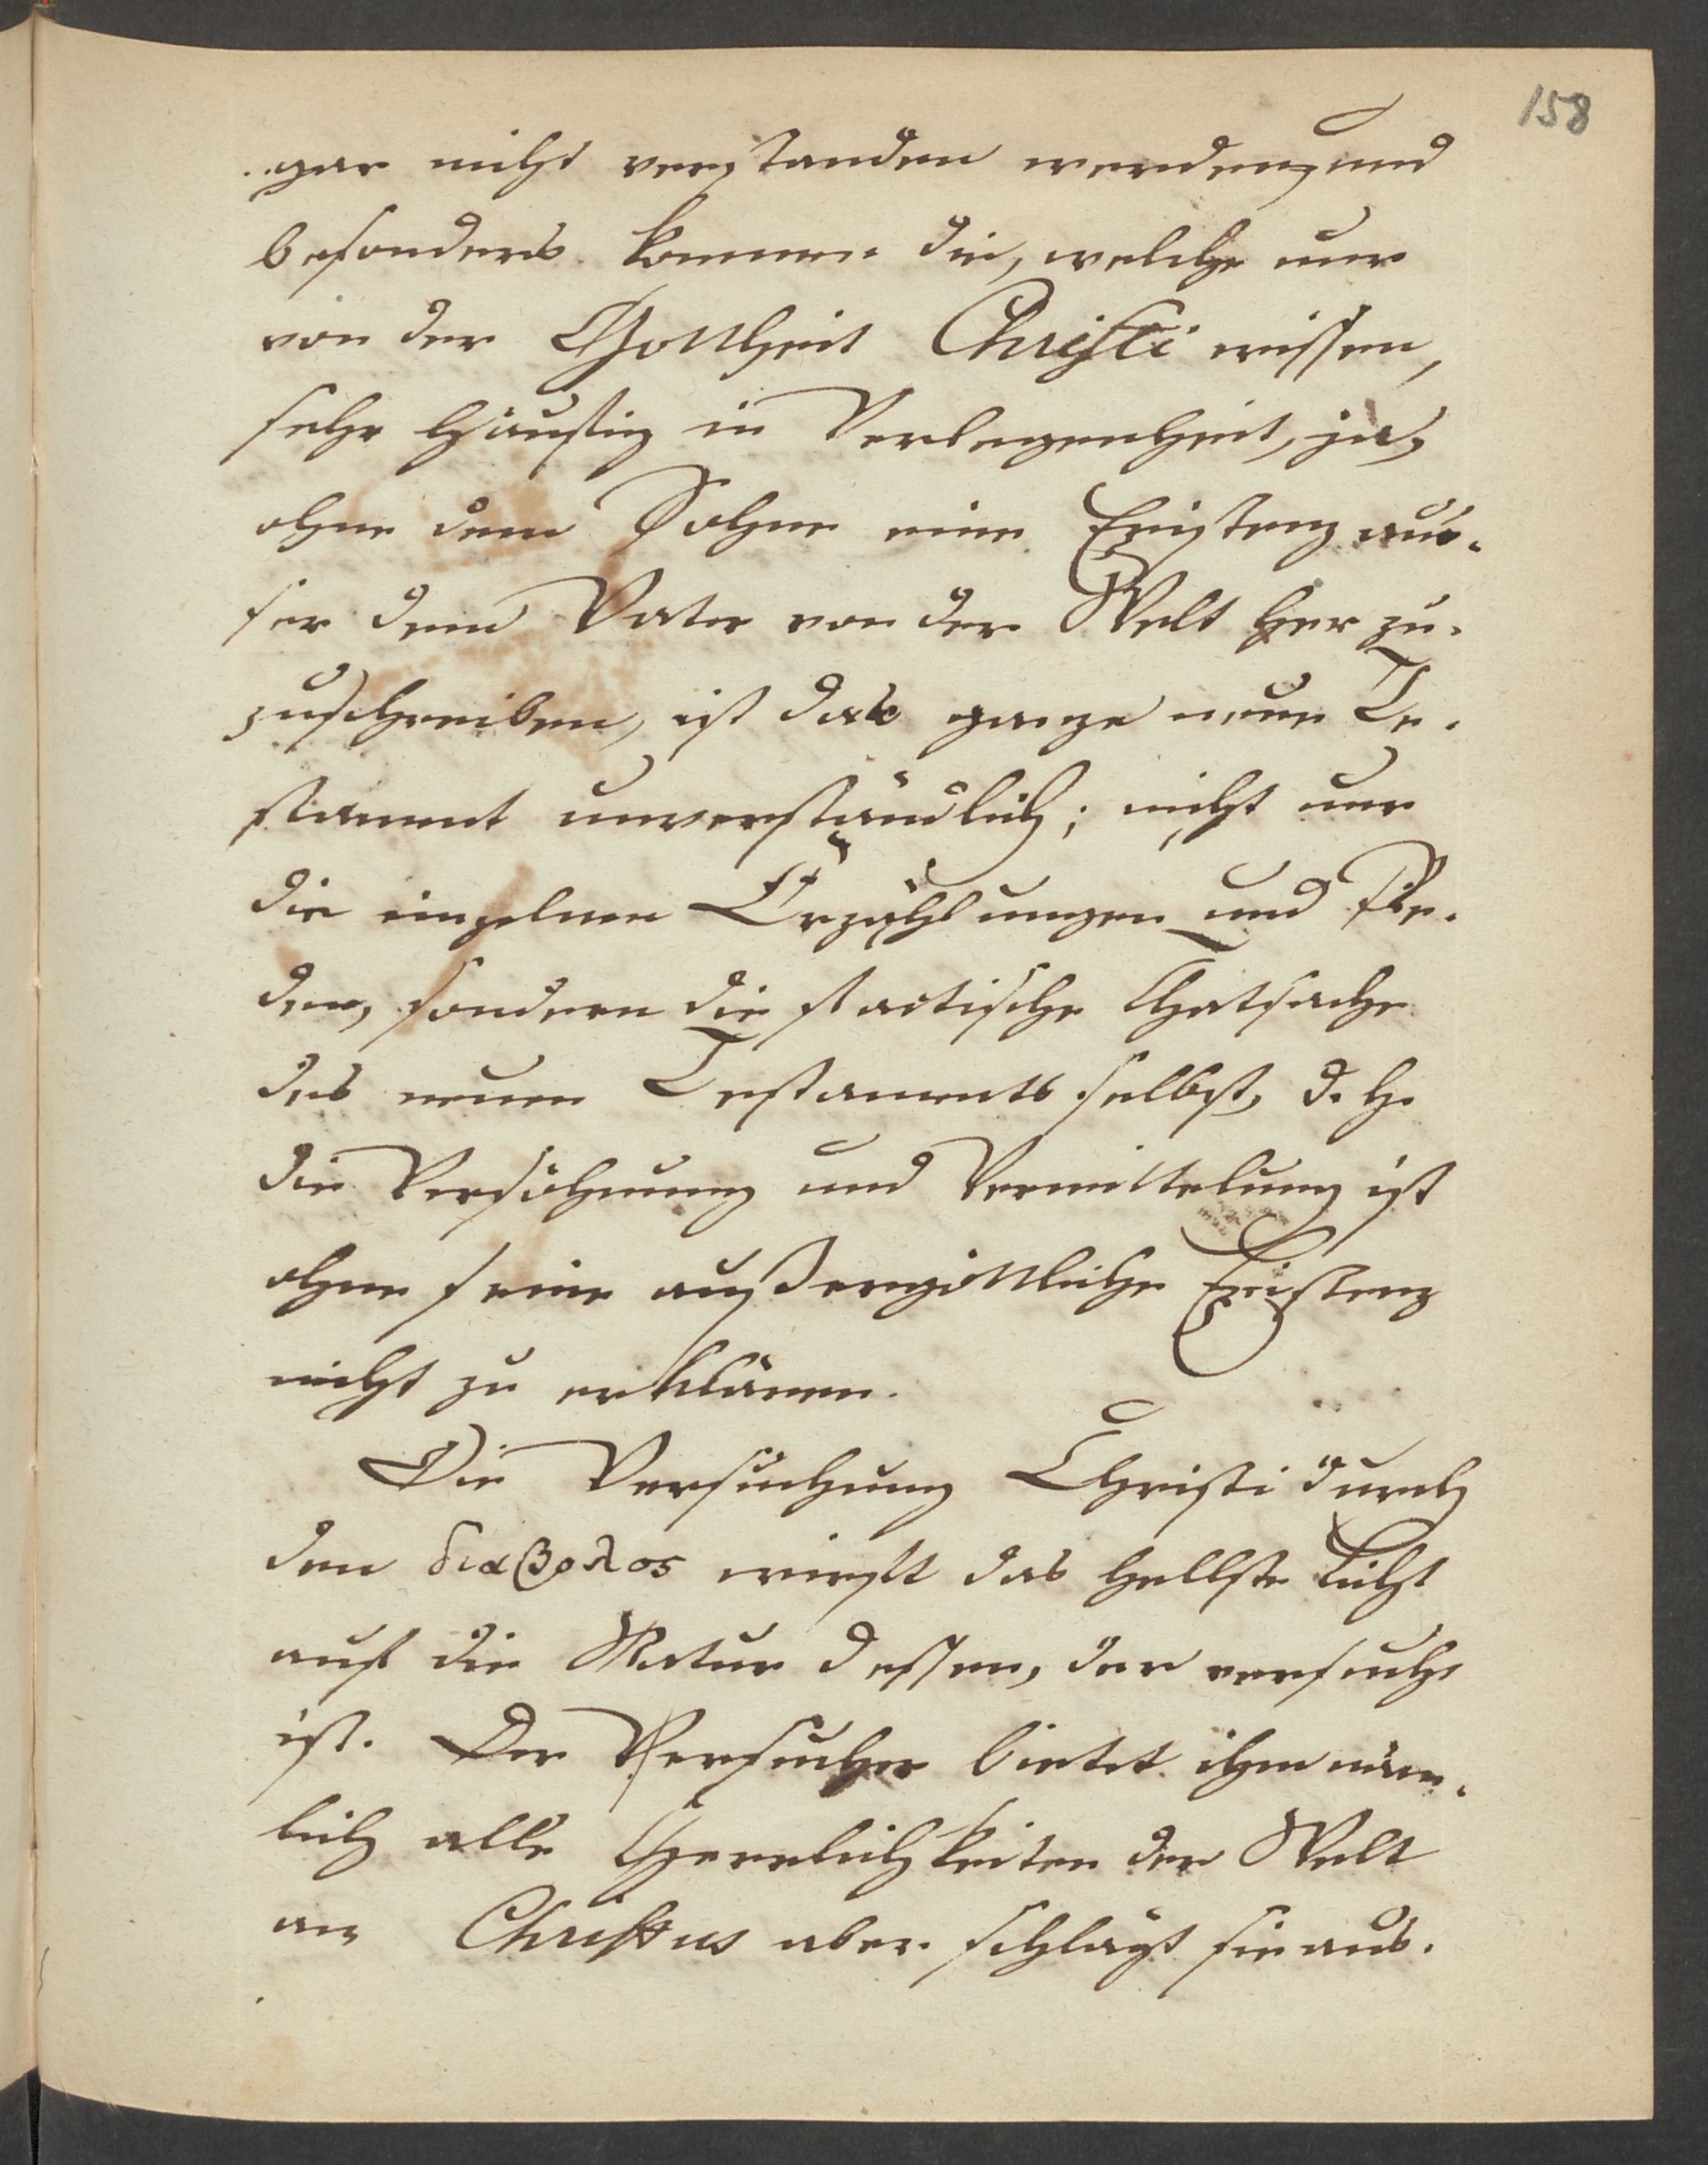 158
gar nicht verstanden werden, und
besonders kommen die, welche nur
von der Gottheit Christi wissen,
sehr häufig in Verlegenheit, ja,
ohne dem Sohne eine Existenz aus-
ser dem Vater von der Welt her zu-
zuschreiben, ist das ganze neue Te-
stament unverständlich; nicht nur
die einzelnen Erzählungen und Re-
den, sondern die factische Thatsache
des neuen Testaments selbst, d. h.
die Versöhnung und Vermittelung ist
ohne seine außergöttliche Existenz
nicht zu erklären.
Die Versuchung Christi durch
den διαβολος wirft das hellste Licht
auf die Natur dessen, der versucht
ist. Der Versucher bietet ihm näm-
lich alle Herrlichkeiten der Welt
an, Christus aber schlägt sie aus.